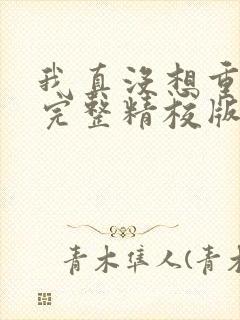 我真没想重
完整精校版
青木隼人(青木